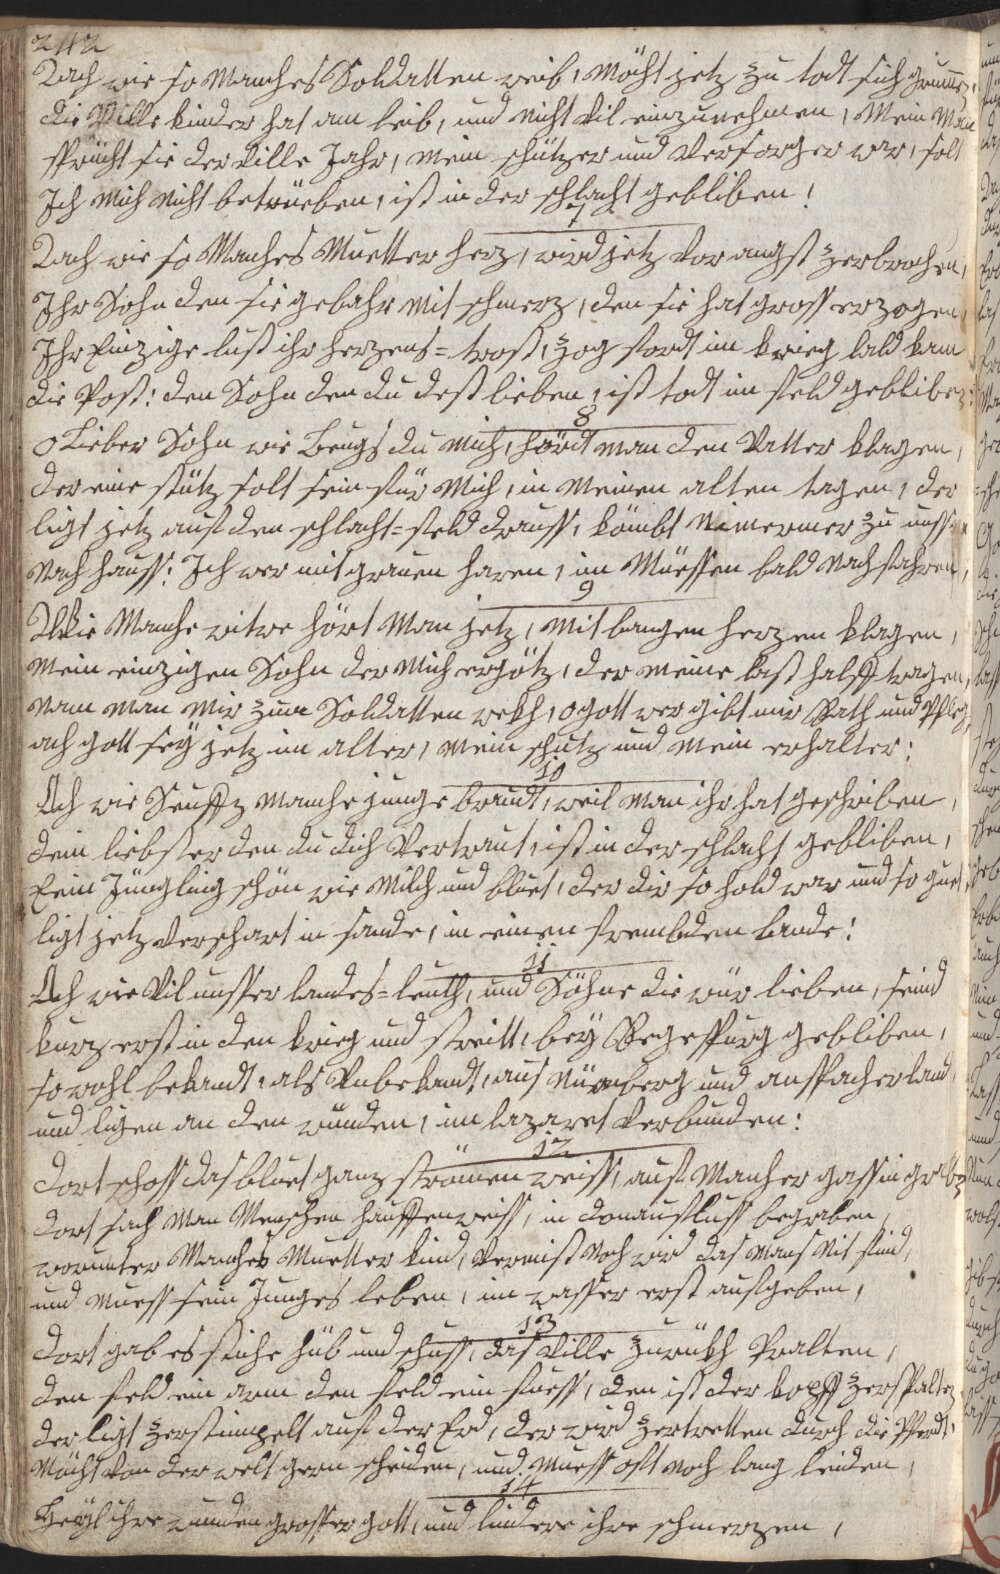 242
Doch wie so Manches Soldatten weib, Möcht jetz zu todt sich grämen,
die Ville kinder hat am leib, und nicht Vil einzunehmen, Mein Man
sprücht sie der Ville Jahr, mein schützer und Versorger war, solt
Ich mich nicht betrüeben, ist in der schlacht gebliben!
7
Doch wie so Manches Muetter herz, wird jetz Vor angst zerbrochen,
Ihr Sohn den sie gebahr mit schmerz, den sie hat gross erzogen,
Ihr Einzige lust ihr herzens=trost, zog fordt im krieg bald kam
die Post: den Sohn den du dest lieben, ist todt im feld gebliben:
8
O Lieber Sohn wie Beugs du mich, hördt man den Vatter klagen,
der eine stütz solt sein für Mich, in Meinen alten tagen, der
ligt jetz auf den schlacht=feld drauss, kömbt Nimermer zu unss
Nach hauss: Ich wer mit grauen haren, im Müessen bald Nachfahren,
9
Wie Manche witwe hört Man jetz, Mit bangen herzen klagen,
Mein einzigen Sohn der Mich ergötz, der meine last halff tragen,
Nam man mir zum Soldatten wekh, o gott wer gibt mir Rath und Pfleg,
ach gott sey jetz im alter, Mein schutz und Mein erhalter:
10
Ach wie Seuftz Manche junge braudt, weil Man ihr hat geschriben,
dein liebster den du dich Vertraut, ist in der schlacht gebliben,
Ein Jüngling schön wie Milch und bluet, der dir so hold war und so guet,
ligt jetz Verschart in sande, in einen frembden lande:
11
Ach wie Vil unsser landes=leuth, und Söhne die wür lieben, seind
kurz erst in den krieg und streitt, bey Regespurg gebliben,
so wohl bekandt, als Unbekandt, aus Nürnberg und anspacher land,
und ligen an den wunden, im lazaret Verbunden:
12
Dort schoss das bluet ganz strömen weiss, auf Mancher gass in graben,
Dort sach Man Menschen hauffenweiss, in donaufluss begraben,
worunter Manches Muetter kind, Vermist Noch wird das Mans Nit find,
und Muess sein Junges leben, im wasser erst aufgeben,
13
Dort gab es stiche hüb und schuss, das Ville zurükh Pralten,
den feld ein arm den feld ein fuess, den ist der kopff zerspalten,
der ligt zerstimpelt auf der Erd, der wird zertretten durch die Pferdt,
Möcht Von der welt gern scheiden, und Muess oft noch lang leiden,
14
Heyl ihre wunden grosser gott, und lindere ihre schmerzen,